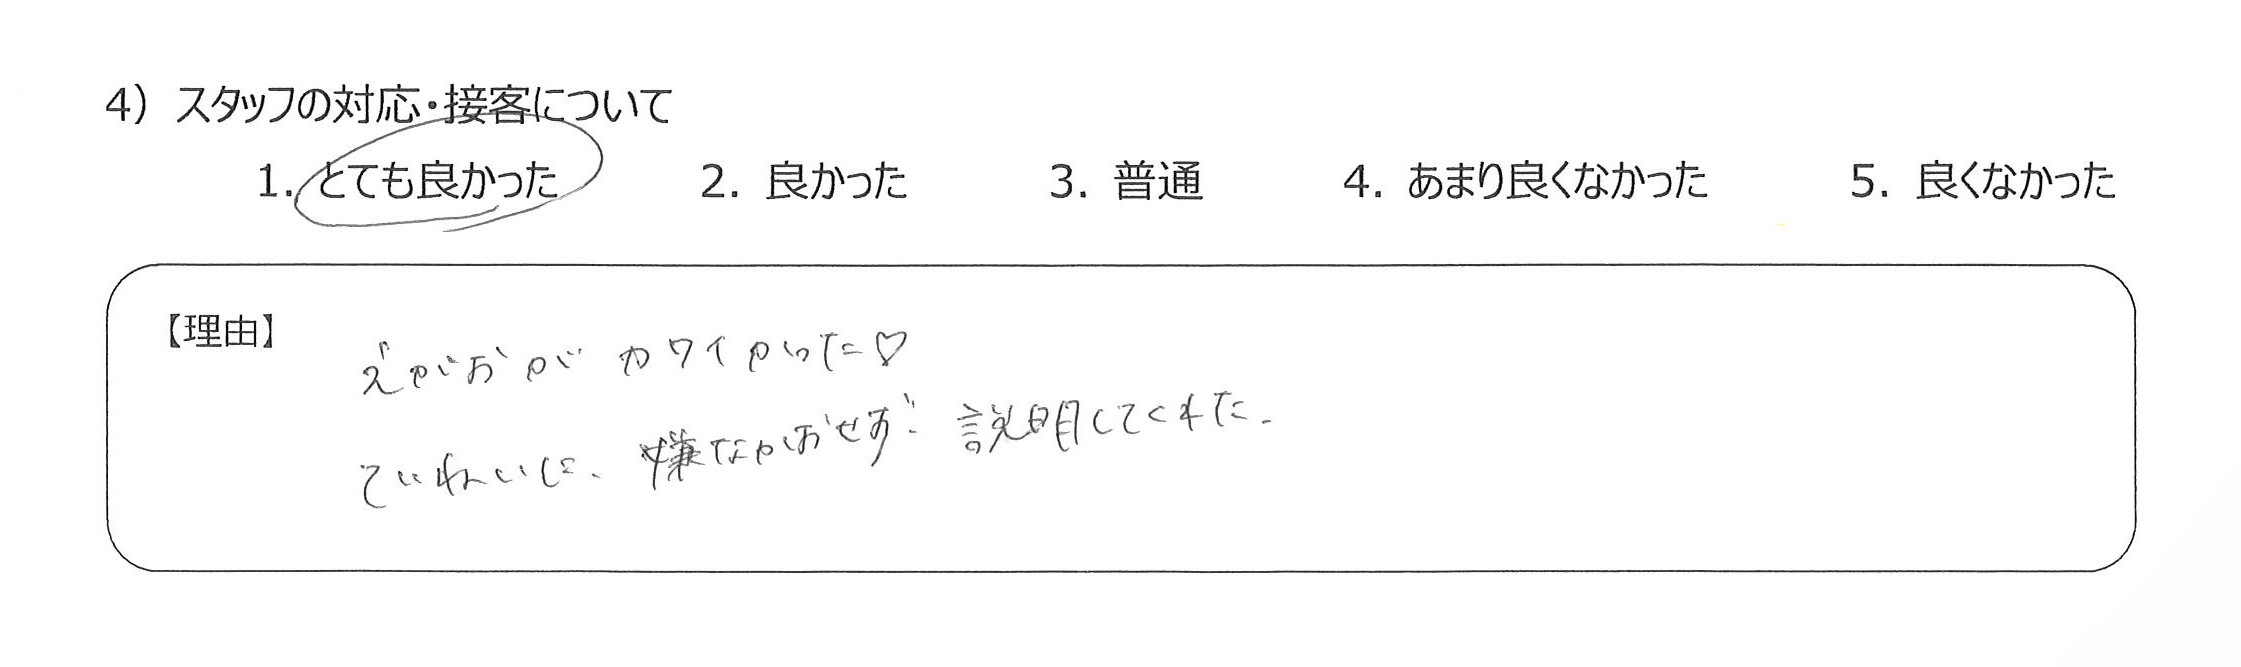 4) スタッフの対応・接客について
1. とても良かった 2. 良かった 3. 普通 4. あまり良くなかった 5. 良くなかった
【理由】
えがおが カワイかった♡
ていねいに、嫌なかおせず 説明してくれた.